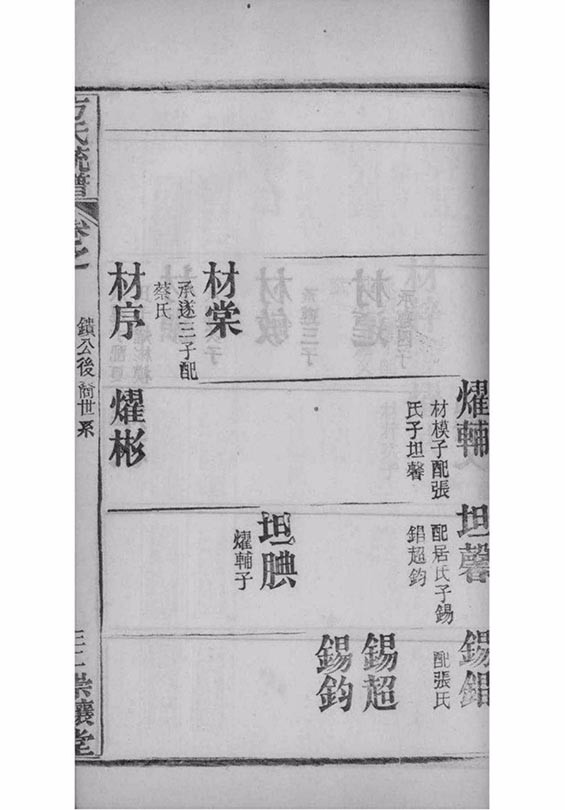 材棠
承遂三子配
蔡氏
材序
燿輔
材模子配張
氏子坦馨
燿彬
坦馨
配居氏子錫
錩超鈞
坦腆
燿輔子
錫錩
配張氏
錫超
錫鈞
方氏統譜
卷之
鐀公後裔世系
崇讓堂